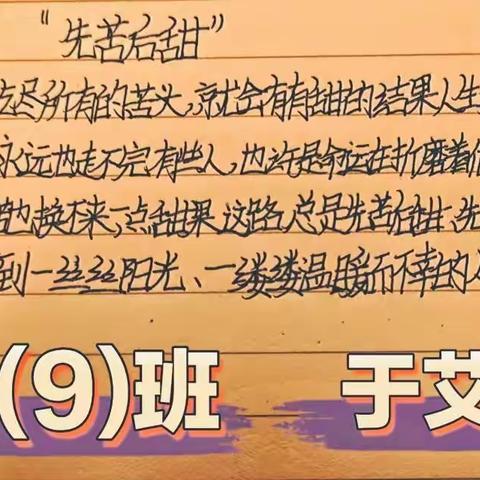 “先苦后甜”
吃尽所有的苦头,就会有有甜的结果人生
永远也走不完,有些人,也许是命运在折磨着他
也换不来一点甜果.这路总是先苦后甜,先
到一丝丝阳光、一缕缕温暖而不幸的人
(9)班 于艾